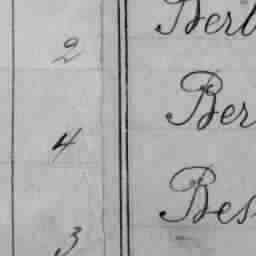 Berl
2
Ber
4
Bes
3